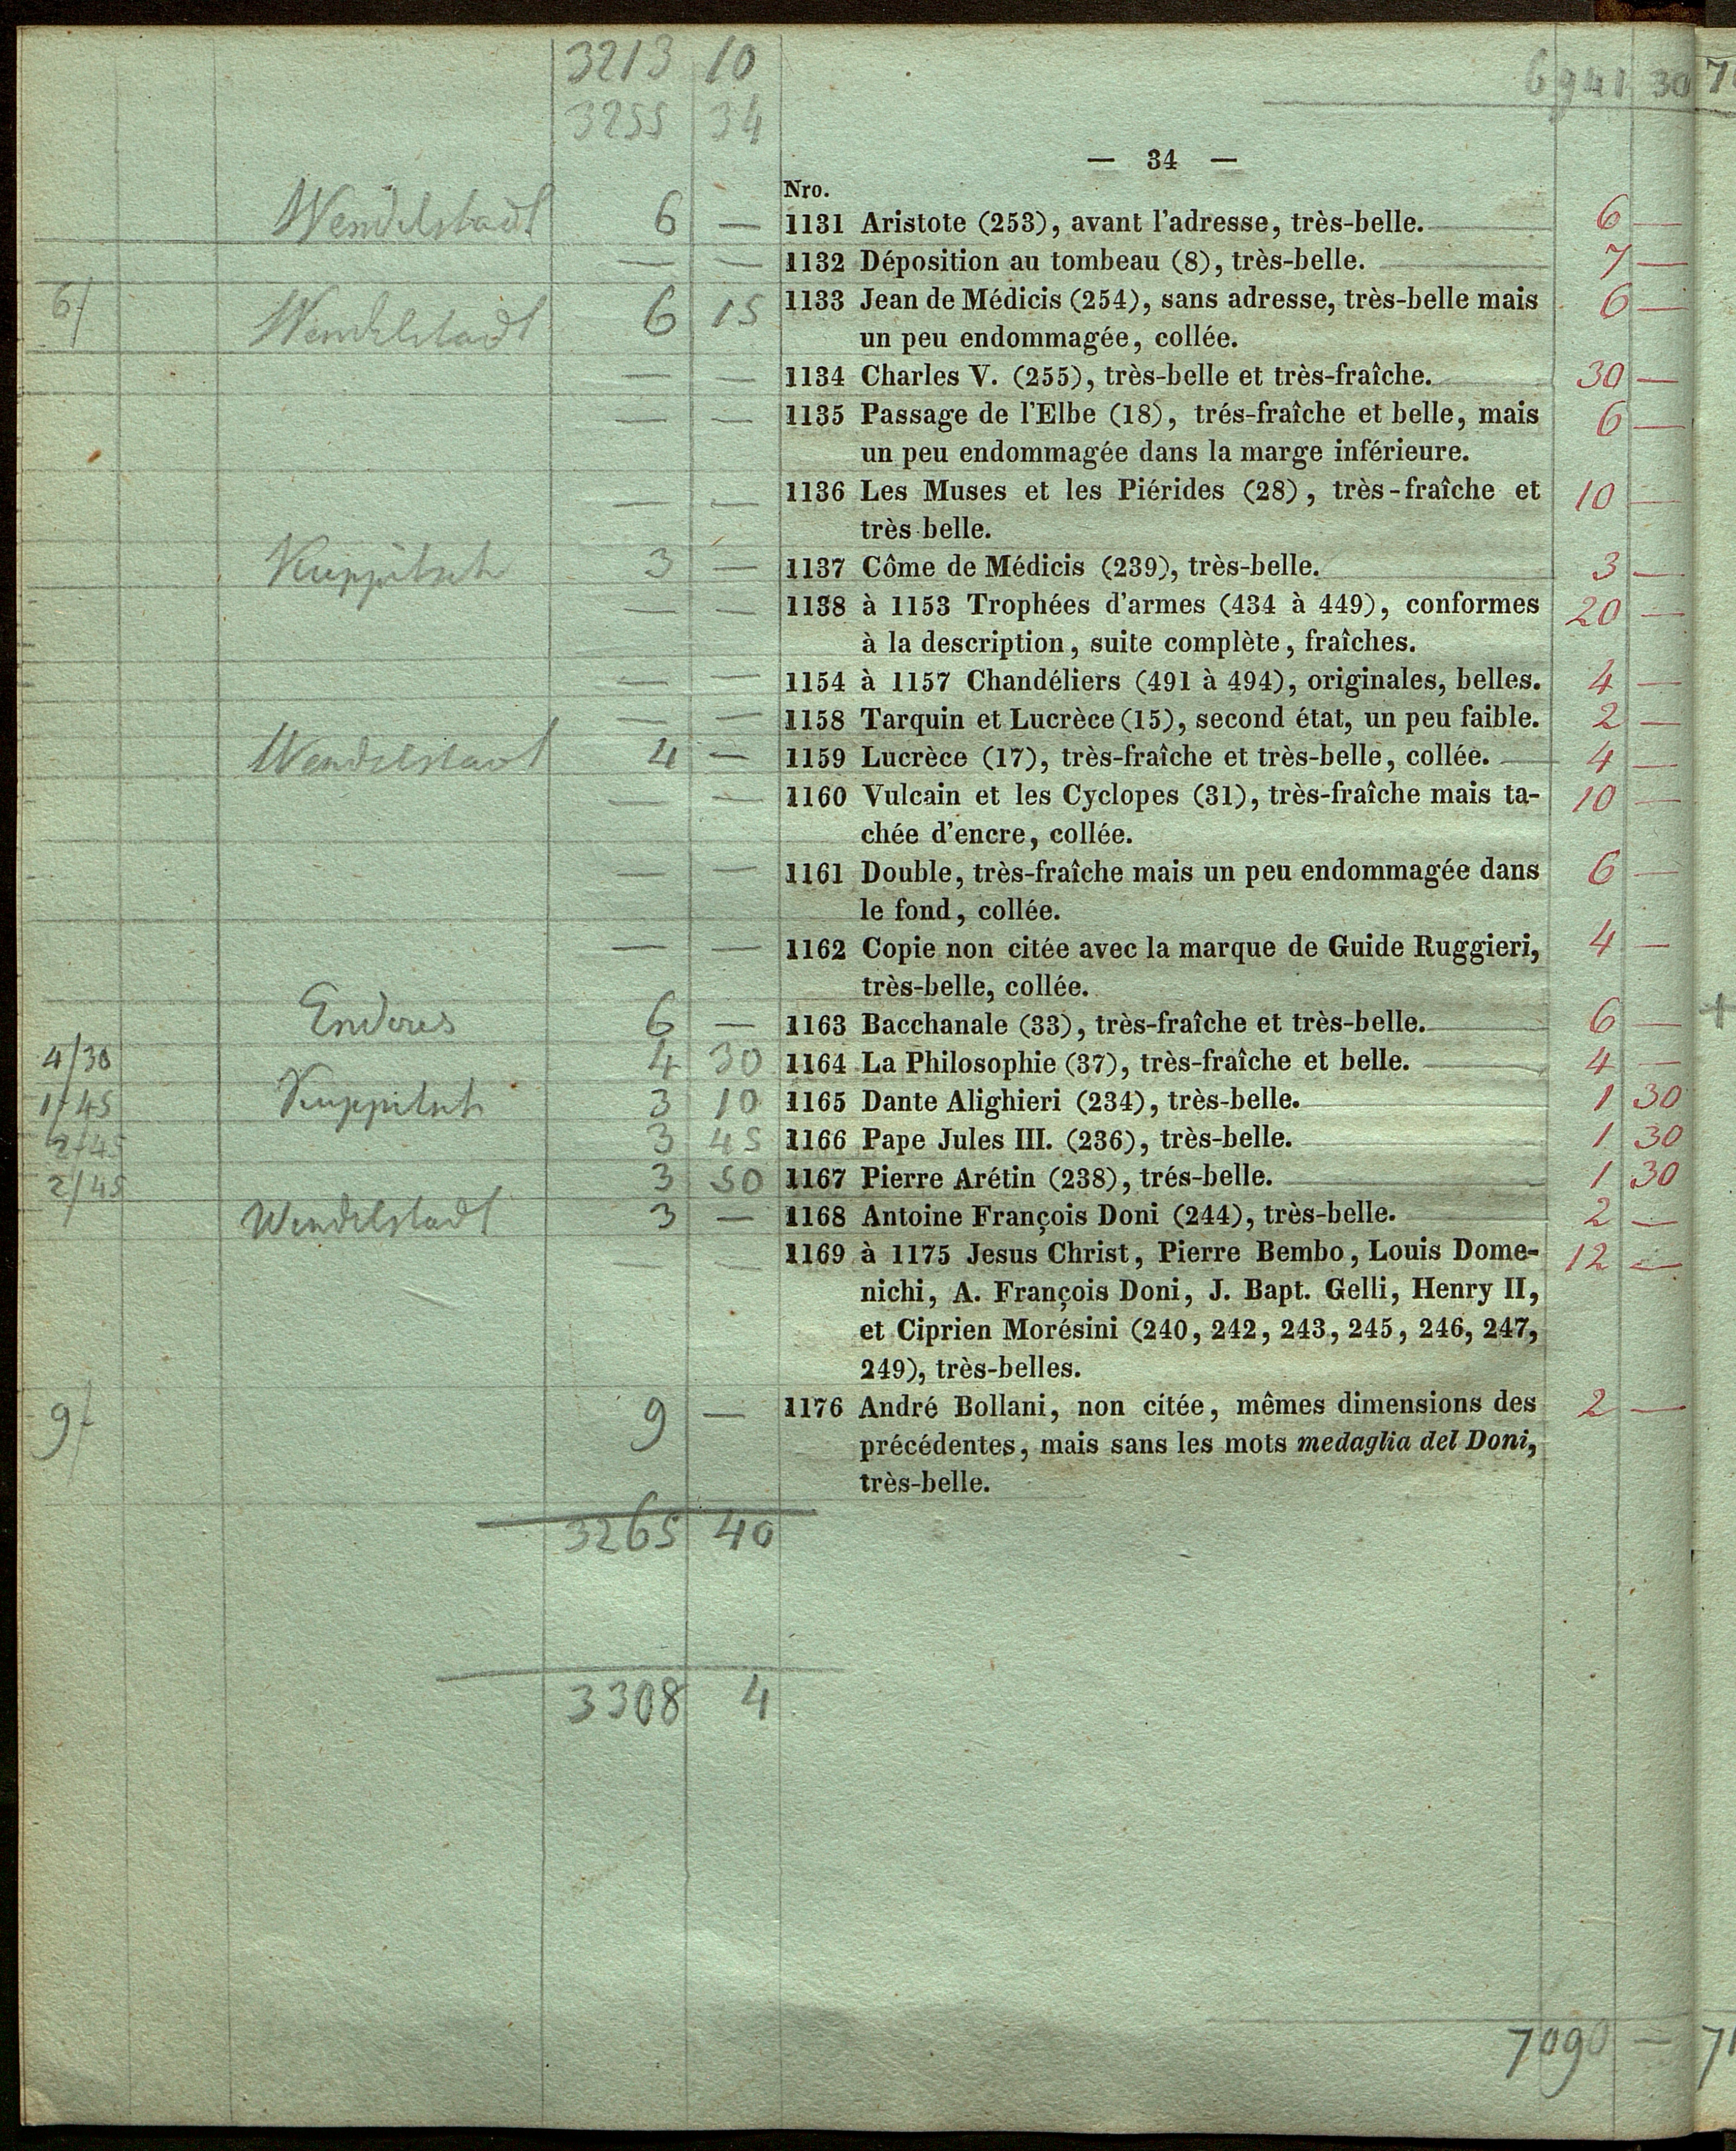 3213 10 6941 30
3255 34
— 34 —
Nro.
Wendelstadt 6 — 1131 Aristote (253), avant l'adresse, très-belle. 6 —
— — 1132 Déposition au tombeau (8), très-belle. 7 —
6/ Wendelstadt 6 15 1133 Jean de Médicis (254), sans adresse, très-belle mais 6 —
un peu endommagée, collée.
— — 1134 Charles V. (255), très-belle et très-fraîche. 30 —
— — 1135 Passage de l'Elbe (18), trés-fraîche et belle, mais 6 —
un peu endommagée dans la marge inférieure.
— — 1136 Les Muses et les Piérides (28), très-fraîche et 10 —
très belle.
Kuppitsch 3 — 1137 Côme de Médicis (239), très-belle. 3 —
— — 1138 à 1153 Trophées d'armes (434 à 449), conformes 20 —
à la description, suite complète, fraîches.
— — 1154 à 1157 Chandéliers (491 à 494), originales, belles. 4 —
— — 1158 Tarquin et Lucrèce (15), second état, un peu faible. 2 —
Wendelstadt 4 — 1159 Lucrèce (17), très-fraîche et très-belle, collée. 4 —
— — 1160 Vulcain et les Cyclopes (31), très-fraîche mais ta- 10 —
chée d'encre, collée.
— — 1161 Double, très-fraîche mais un peu endommagée dans 6 —
le fond, collée.
— — 1162 Copie non citée avec la marque de Guide Ruggieri, 4 —
très-belle, collée.
Enderes 6 — 1163 Bacchanale (33), très-fraîche et très-belle. 6 —
4/30 4 30 1164 La Philosophie (37), très-fraîche et belle. 4 —
1/45 Kuppitsch 3 10 1165 Dante Alighieri (234), très-belle. 1 30
2/45 3 45 1166 Pape Jules III. (236), très-belle. 1 30
2/45 3 50 1167 Pierre Arétin (238), trés-belle. 1 30
Wendelstadt 3 — 1168 Antoine François Doni (244), très-belle. 2 —
— — 1169 à 1175 Jesus Christ, Pierre Bembo, Louis Dome- 12 —
nichi, A. François Doni, J. Bapt. Gelli, Henry II,
et Ciprien Morésini (240, 242, 243, 245, 246, 247,
249), très-belles.
9/ 9 — 1176 André Bollani, non citée, mêmes dimensions des 2 —
précédentes, mais sans les mots medaglia del Doni,
très-belle.
3265 40
3308 4
7090 —